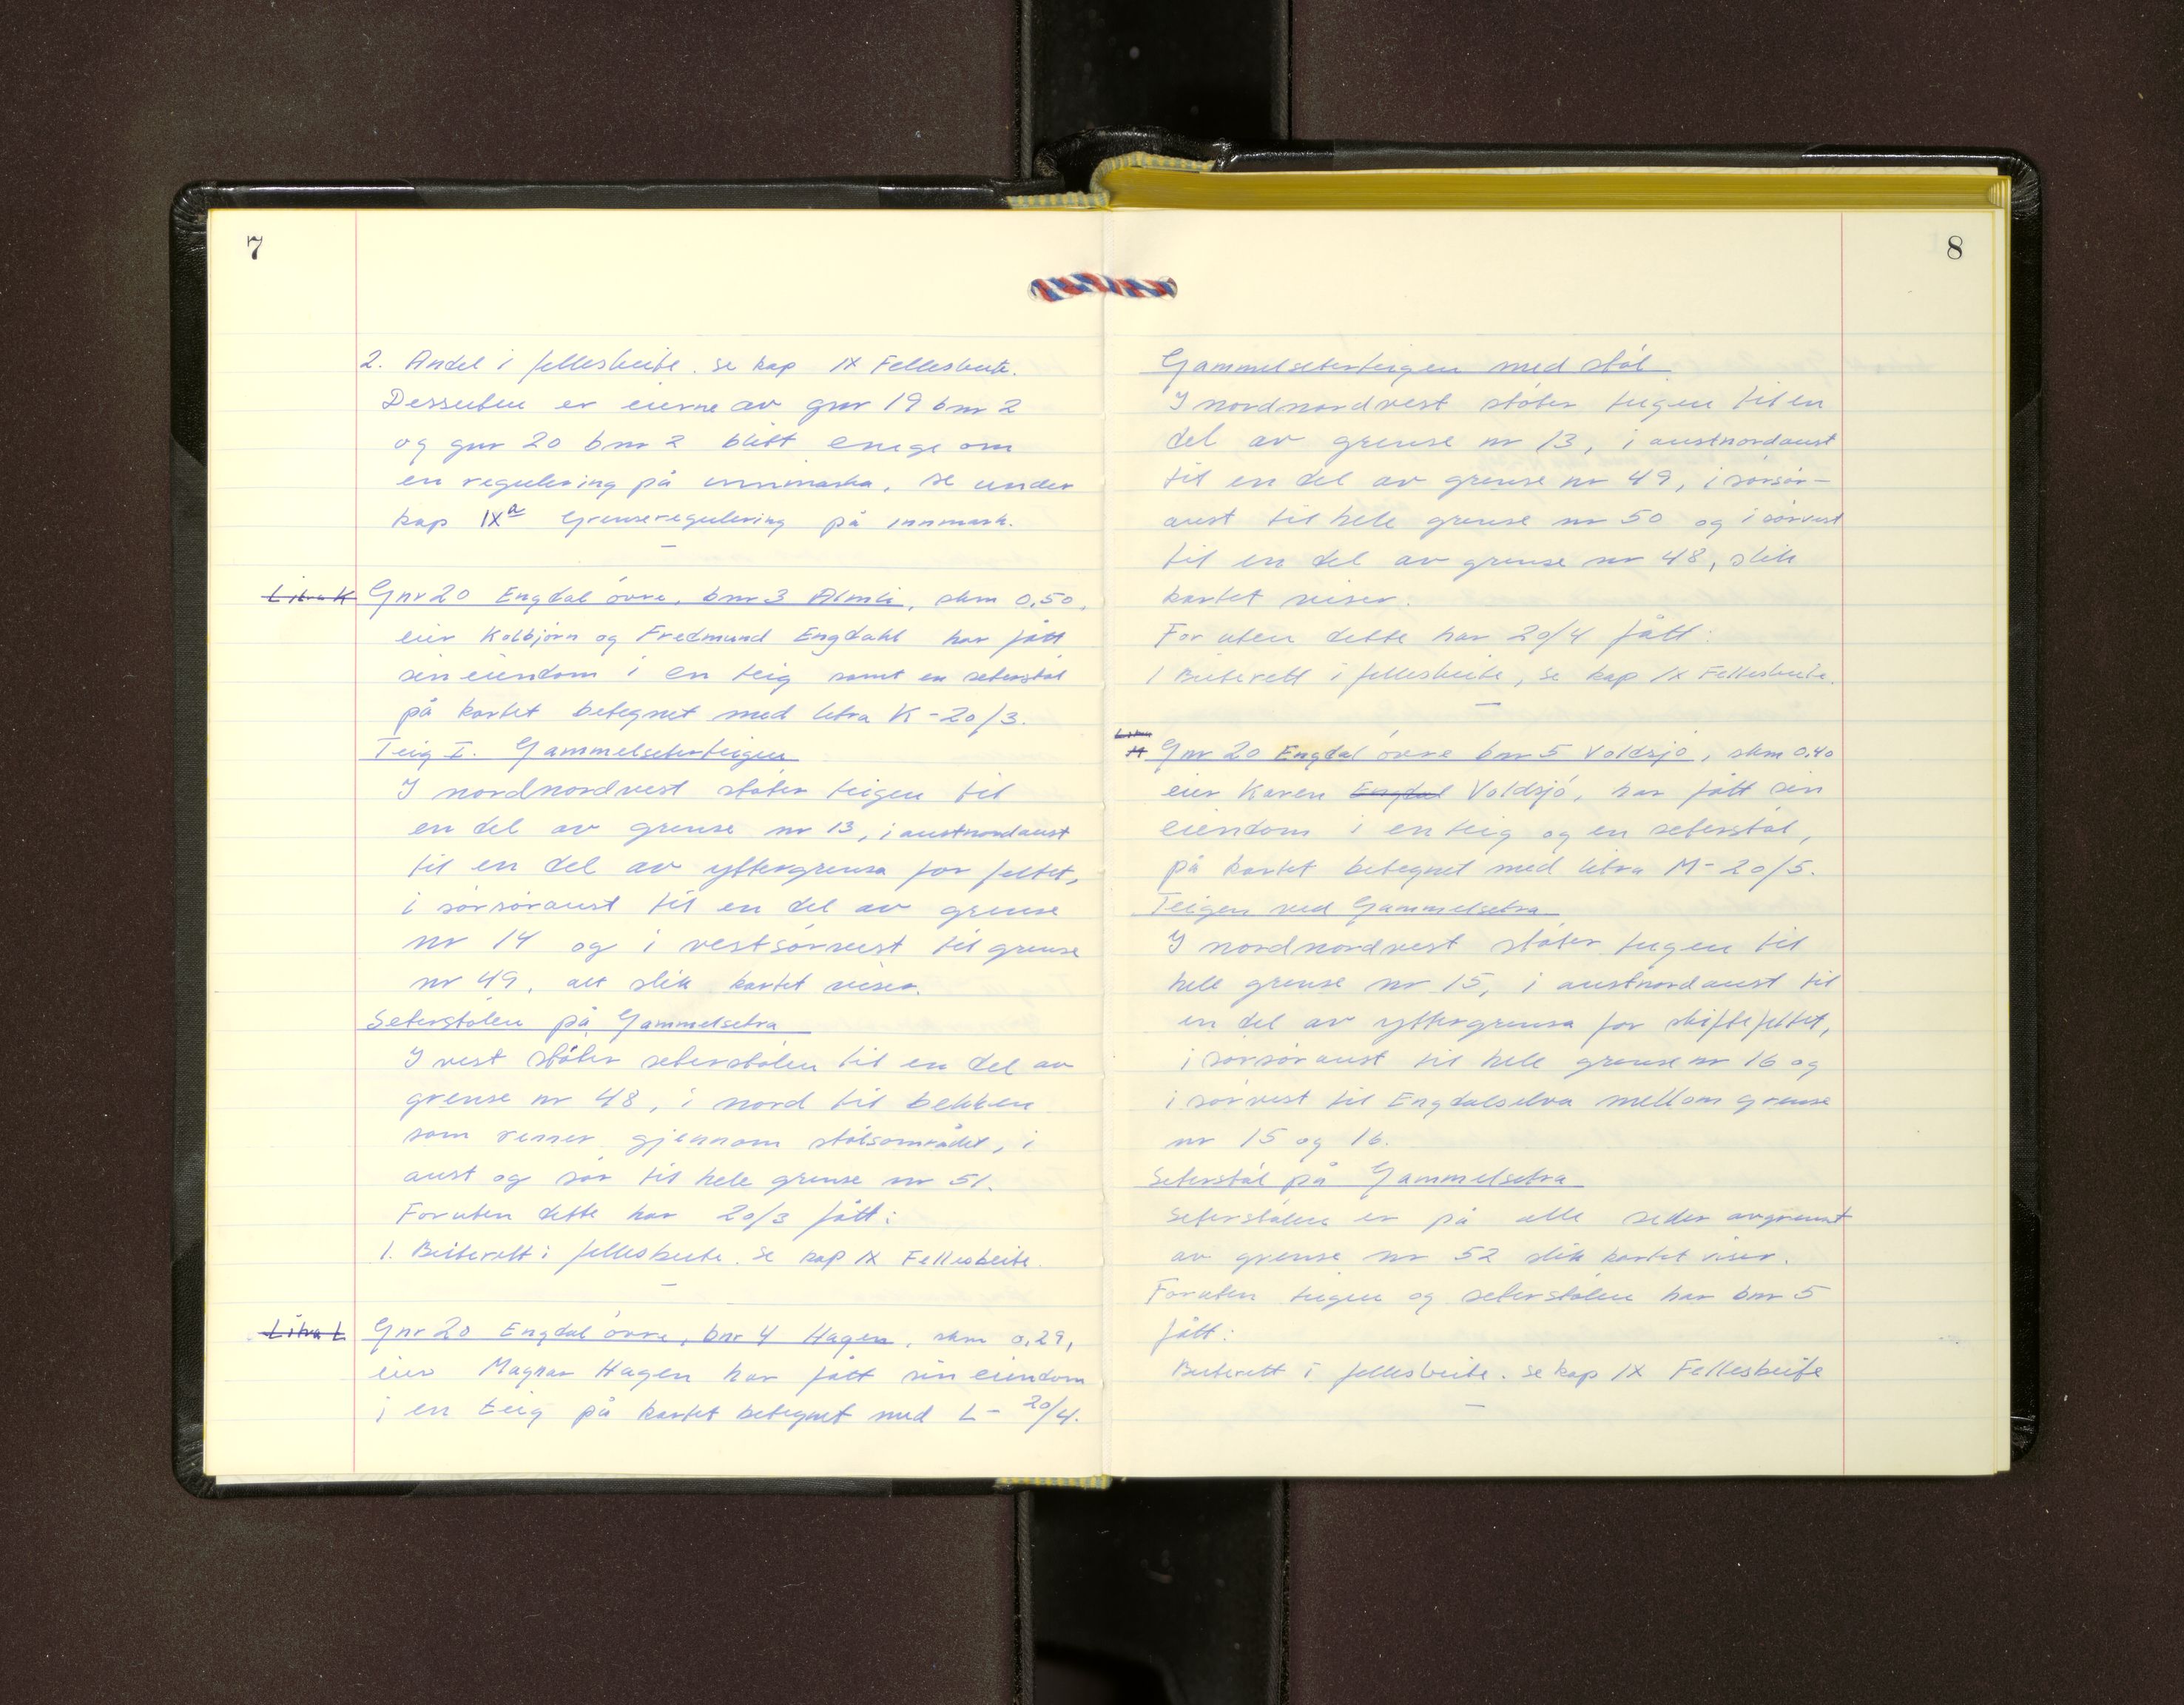 7
2. Andel i fellesbeite. se kap IX Fellesbeite.
Dessuten er eierne av gnr 19 bnr 2
og gnr 20 bnr 2 blitt enege om
en regulering på innmarka, se under
kap IXa Grenseregulering på innmark.
Litra K Gnr 20 Engdal øvre, bnr 3 Almli, skm 0,50,
eier Kolbjørn og Fredmund Engdahl har fått
sin eiendom i en teig samt en seterstøl
på kartet betegnet med litra K-20/3.
Teig I. Gammelseterteigen
I nordnordvest støter teigen til
en del av grense nr 13, i austnordaust
til en del av yttergrensa for feltet,
i sørsøraust til en del av grense
nr 14 og i vestsørvest til grense
nr 49, alt slik kartet viser.
Seterstølen på Gammelsetra
I vest støter seterstølen til en del av
grense nr 48, i nord til bekken
som renner gjennom stølsområdet, i
aust og sør til hele grense nr 51.
Foruten dette har 20/3 fått:
1. Beiterett i fellesbeite. se kap IX Fellesbeite.
Litra L Gnr 20 Engdal øvre, bnr 4 Hagen, skm 0,29,
eier Magnar Hagen har fått sin eiendom
i en teig på kartet betegnet med L- 20/4.
8
Gammelseterteigen med støl
I nordnordvest støter teigen til en
del av grense nr 13, i austnordaust
til en del av grense nr 49, i sørsør-
aust til hele grense nr 50 og i sørvest
til en del av grense nr 48, slik
kartet viser.
Foruten dette har 20/4 fått:
1 Beiterett i fellesbeite, se kap IX Fellesbeite.
Litra
M Gnr 20 Engdal øvre bnr 5 Voldsjø, skm 0,40
eier Karen Engdal Voldsjø, har fått sin
eiendom i en teig og en seterstøl,
på kartet betegnet med litra M-20/5.
Teigen ved Gammelsetra
I nordnordvest støter teigen til
hele grense nr 15, i austnordaust til
en del av yttergrensa for skiftefeltet,
i sørsøraust til hele grense nr 16 og
i sørvest til Engdalselva mellom grense
nr 15 og 16.
Seterstøl på Gammelsetra
Seterstølen er på alle sider avgrenset
av grense nr 52 slik kartet viser.
Foruten teigen og seterstølen har bnr 5
fått:
Beiterett i fellesbeite. se kap IX Fellesbeite